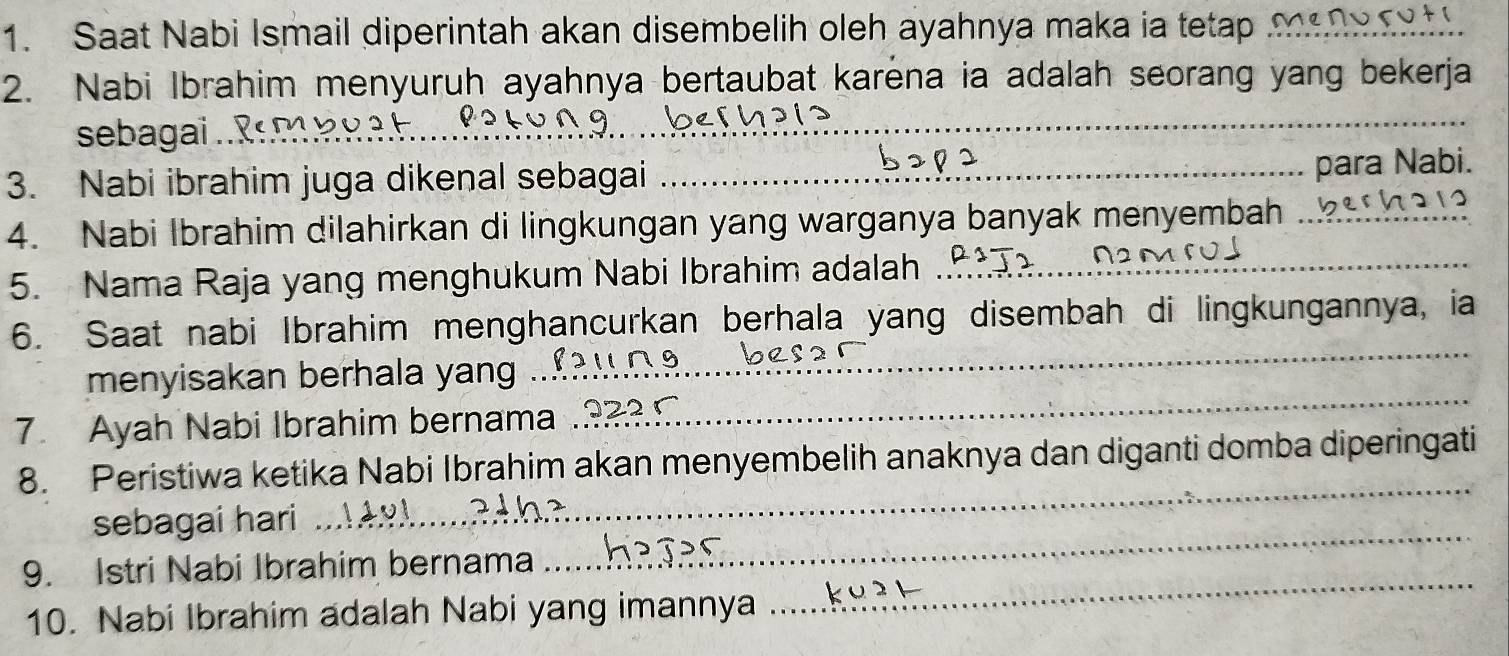 1. Saat Nabi Ismail diperintah akan disembelih oleh ayahnya maka ia tetap menuruti
2. Nabi Ibrahim menyuruh ayahnya bertaubat karena ia adalah seorang yang bekerja
sebagai Pembuat patung berhala
3. Nabi ibrahim juga dikenal sebagai bapa para Nabi.
4. Nabi Ibrahim dilahirkan di lingkungan yang warganya banyak menyembah berhala
5. Nama Raja yang menghukum Nabi Ibrahim adalah Raja namrud
6. Saat nabi Ibrahim menghancurkan berhala yang disembah di lingkungannya, ia
menyisakan berhala yang paling besar
7. Ayah Nabi Ibrahim bernama azar
8. Peristiwa ketika Nabi Ibrahim akan menyembelih anaknya dan diganti domba diperingati
sebagai hari idul adha
9. Istri Nabi Ibrahim bernama hajar
10. Nabi Ibrahim adalah Nabi yang imannya kuat